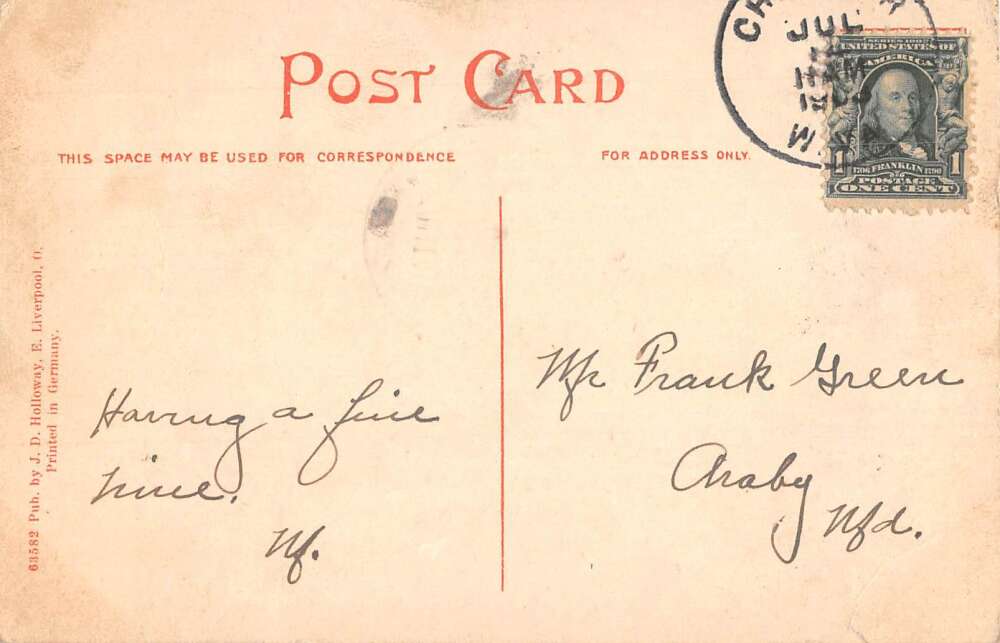 POST CARD
THIS SPACE MAY BE USED FOR CORRESPONDENCE
FOR ADDRESS ONLY.
JUL
11 AM
W. VA.
SERIES 1902
UNITED STATES OF
AMERICA
1706 FRANKLIN 1790
1 POSTAGE 1
ONE CENT
63582 Pub. by J. D. Holloway, E. Liverpool, O.
Printed in Germany.
Having a fine
time.
M.
Mr Frank Green
Araby
Md.